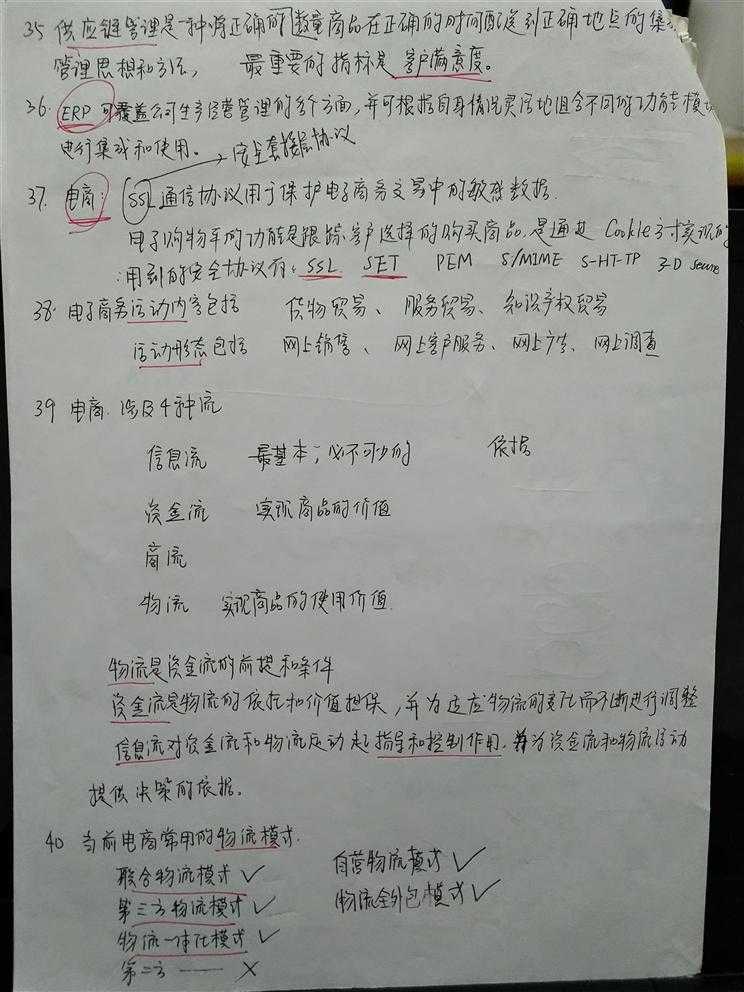 35 供应链管理是一种将正确的数量商品在正确的时间配送到正确地点的集
管理思想和方法， 最重要的指标是 客户满意度。
36. ERP 可覆盖公司生产经营管理的各个方面，并可根据自身情况灵活地组合不同的功能模
进行集成和使用。 安全套接层协议
37. 电商： SSL 通信协议用于保护电子商务交易中的敏感数据.
电子购物车的功能是跟踪客户选择的购买商品，是通过 Cookie 方式实现的
用到的安全协议有： SSL SET PEM S/MIME S-HTTP 3-D Secure
38. 电子商务活动内容包括 货物贸易、 服务贸易、 知识产权贸易
活动形态包括 网上销售、 网上客户服务、 网上广告、 网上调查
39 电商. 涉及4种流
信息流 最基本，必不可少的 依据
资金流 实现商品的价值
商流
物流 实现商品的使用价值.
物流是资金流的前提和条件
资金流是物流的依托和价值担保，并为适应物流的变化而不断进行调整
信息流对资金流和物流运动起指导和控制作用。并为资金流和物流活动
提供决策的依据。
40 当前电商常用的物流模式.
联合物流模式 ✓ 自营物流模式 ✓
第三方物流模式 ✓ 物流全外包模式 ✓
物流一体化模式 ✓
第二方 —— ×